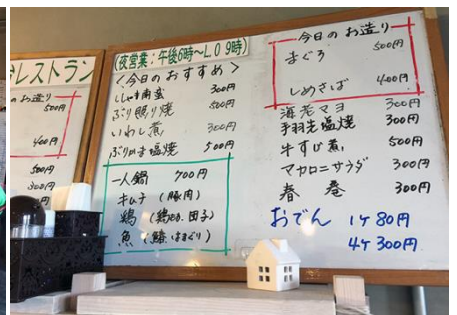 レストラン
のお造り
500円
400円
500円
300円
(夜営業:午後6時〜L.O 9時)
<今日のおすすめ>
300円
ぶり照り焼 500円
いわし煮 300円
ぶりかま塩焼 500円
一人鍋 700円
キムチ (豚肉)
鶏 (鶏もも、団子)
魚 (鱈 はまぐり)
今日のお造り
まぐろ 500円
しめさば 400円
海老マヨ 300円
手羽先塩焼 300円
牛すじ煮 500円
マカロニサラダ 300円
春巻 300円
おでん 1ケ80円
4ケ300円